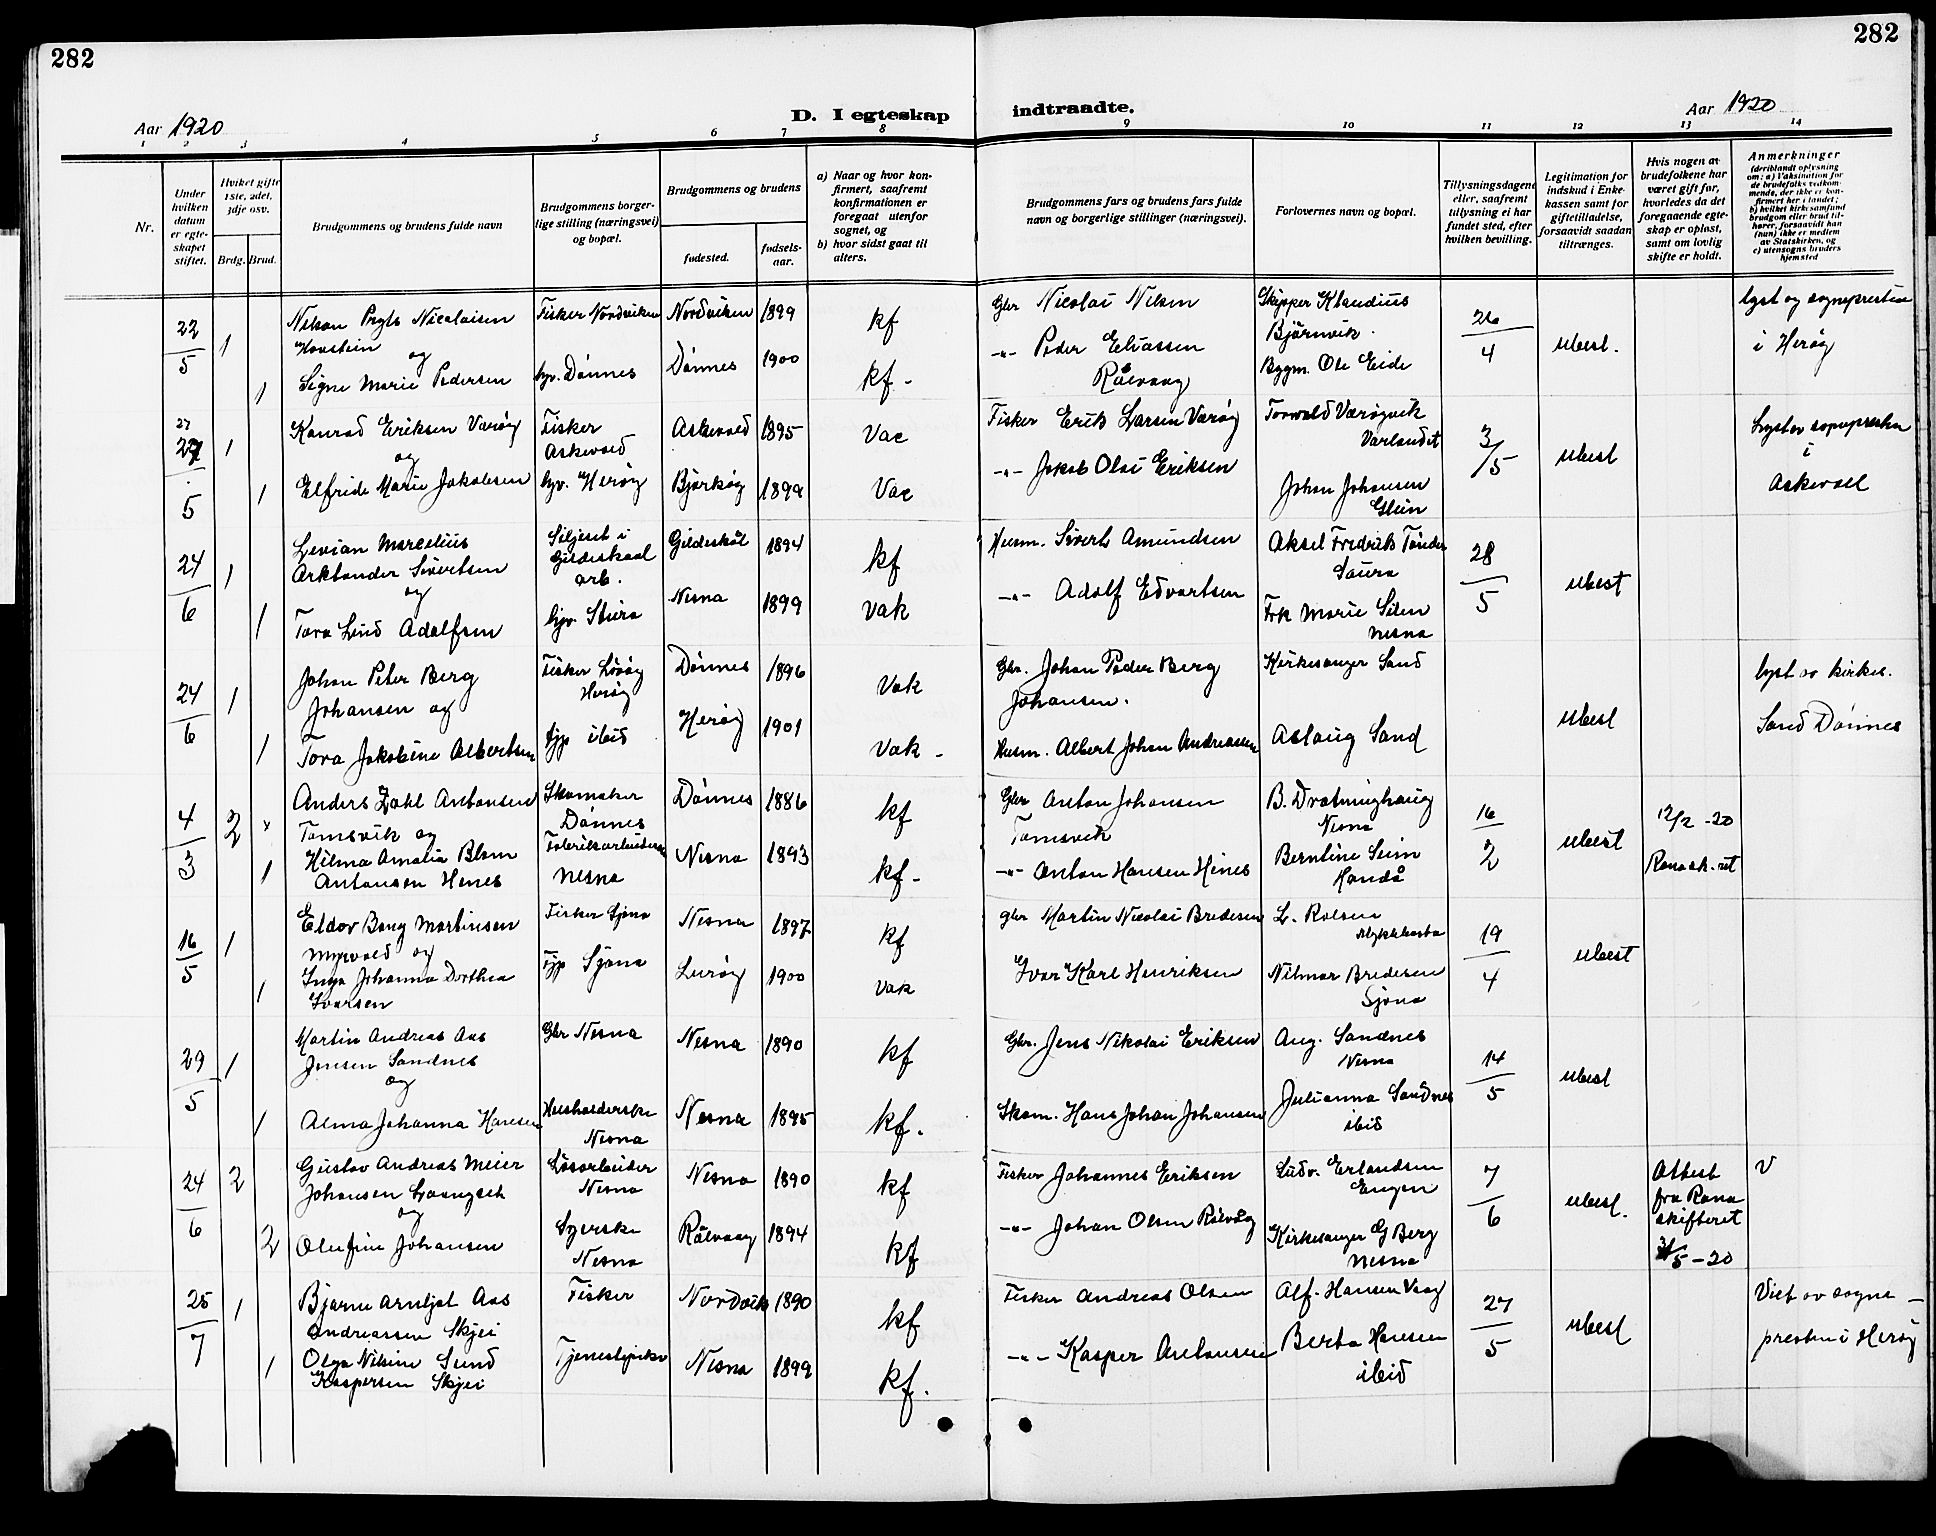 282
282
Aar 1920
D. I egteskap
indtraadte.
Aar 1920
1
2
3
4
5
6
7
8
9
10
11
12
13
14
Nr.
Under hvilken datum er egteskapet stiftet.
Hvilket gifte 1ste, 2det, 3dje osv.
Brdg.
Brud.
Brudgommens og brudens fulde navn
Brudgommens borgerlige stilling (næringsvei) og bopæl.
Brudgommens og brudens
fødested.
fødselsaar.
a) Naar og hvor konfirmert, saafremt konfirmationen er foregaat utenfor sognet, og
b) hvor sidst gaat til alters.
Brudgommens fars og brudens fars fulde navn og borgerlige stillinger (næringsvei).
Forlovernes navn og bopæl.
Tillysningsdagene eller, saafremt tillysning ei har fundet sted, efter hvilken bevilling.
Legitimation for indskud i Enkekassen samt for giftetilladelse, forsaavidt saadan tiltrænges.
Hvis nogen av brudefolkene har været gift før, hvorledes da det foregaaende egteskap er opløst, samt om lovlig skifte er holdt.
Anmerkninger (deriblandt oplysning om: a) Vaksination for de brudefolks vedkommende, der ikke er konfirmert her i landet; b) hvilket kirkesamfund brudgom eller brud tilhører, forsaavidt han (hun) ikke er medlem av Statskirken, og c) utensogns bruders hjemsted
22/5 1 Nilson Nicolaisen Fisker Nordviken Nordviken 1899 kf Gbr Nicolai Nilsen Skipper Klaudius 26/4 ubest. lyst og sogneprestin
Hovstein og Bjørnvik. i Herøy
1 Signe Marie Pedersen hjv. Dønnes Dønnes 1900 kf - -"- Peder Eliassen Rølvaag Bygm. Ole Eide
27
27/5 1 Konrad Eriksen Værøy Fisker Askevold Askevold 1895 Vac Fisker Erik Larsen Værøy Torvald Værøyvik 3/5 ubest Lyst av sogneprestn
og Værlandet i
1 Elfride Marie Jakobsen hjv. Herøy Bjørkøy 1899 Vac -"- Jakob Olai Eriksen Johan Johansen Glein Askevoll
24/6 1 Levian Marcelius i Gildeskaal arb. Gildeskål 1894 kf Husm. Sivert Amundsen Aksel Fredrik Tønder 28/5 ubest
Arktander Sivertsen og Saura
1 Tora Lind Adolfsen hjv. Nesna 1899 vak -"- Adolf Edvartsen Frk Marie Nesna
24/6 1 Johan Peter Berg Fisker Herøy Dønnes 1896 Vak Gbr. Johan Peder Berg Kirkesanger Sand ubest lyst av kirkes.
Johansen og Johansen. Sand Dønnes
1 Tora Jakobine Albertsen ibid Herøy 1901 Vak - Husm. Albert Johan Andreassen Aslaug Sand
4/3 2 Anders Zahl Antonsen Skomaker Dønnes Dønnes 1886 kf Gbr Anton Johansen B. Drotninghaug 16/2 ubest 12/2 -20
Tomsvik og Tomsvik Nesna
1 Hilma Amalia Blom Fabrikarbeiderske Nesna Nesna 1893 kf - -"- Anton Hansen Hines Berntine Seim Rana sk.-ret
Antonsen Henes Handå
16/5 1 Eldor Bang Martinsen Fisker Sjona Nesna 1897 kf Gbr Martin Nicolai Bredesen L. Rolsen 19/4 ubest
Myrvold og
1 Inga Johanna Dorthea Sjona Lurøy 1900 vak Ivar Karl Henriksen Hilmar Bredesen
Ivarsen Sjona
29/5 1 Martin Andreas Aas Gbr Nesna Nesna 1890 kf Gbr. Jens Nikolai Eriksen Aug. Sandnes 14/5 ubest
Jensen Sandnes og Nesna
1 Alma Johanna Hansen Husholderske Nesna Nesna 1895 kf. Skom. Hans Johan Johansen Julianna Sandnes ibid
24/6 2 Gustav Andreas Meier Løsarbeider Nesna Nesna 1890 kf Fisker Johannes Eriksen Ludv. Erlandsen 7/6 ubest. Attest V
Johansen og Engen fra Rana
2 Olufine Johansen Syerske Nesna Rølvaag 1894 kf -"- Johan Olsen Rølvåg Kirkesanger G Berg Nesna skifteret
/5 - 20
25/7 1 Bjarne Arnljot Aas Fisker Nordvik 1890 kf Fisker Andreas Olsen Alf. Hansen Vaag 27/5 ubest Viet av sogne-
Andreassen Skjei presten i Herøy
1 Olga Nilsine Sund Tjenestepike Nesna 1899 kf. -"- Kasper Antonsen Berta Hansen ibid
Kaspersen Skjei